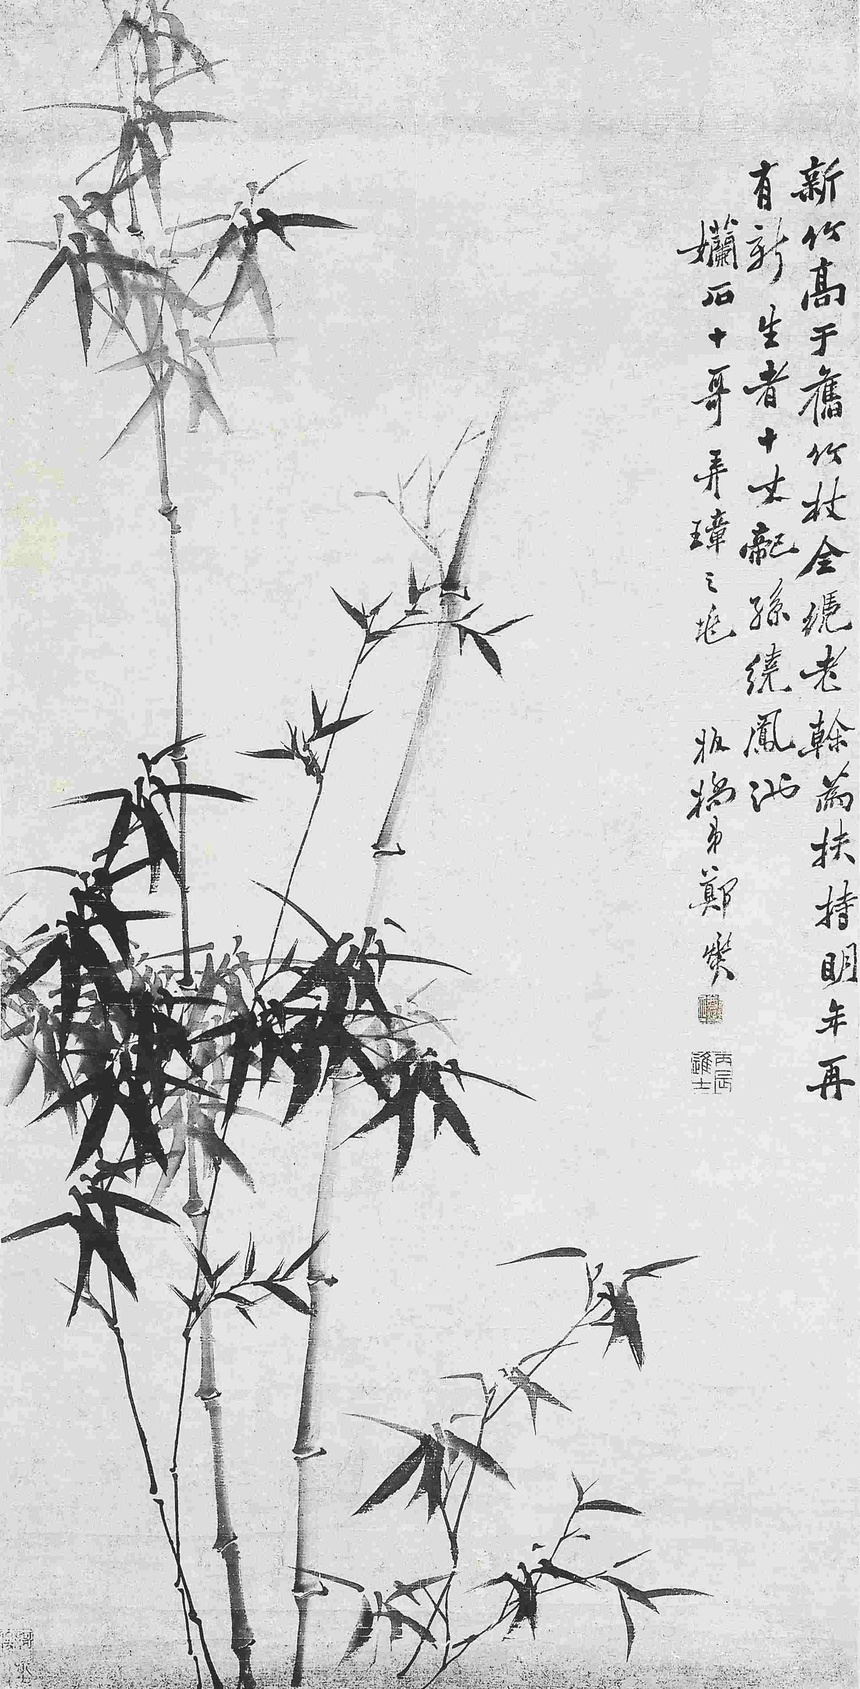 新竹高于舊竹枝全憑老榦為扶持明年再
有新生者十丈龍孫繞鳳池
孏石十哥弄璋之
板橋弟鄭燮
丙辰進士